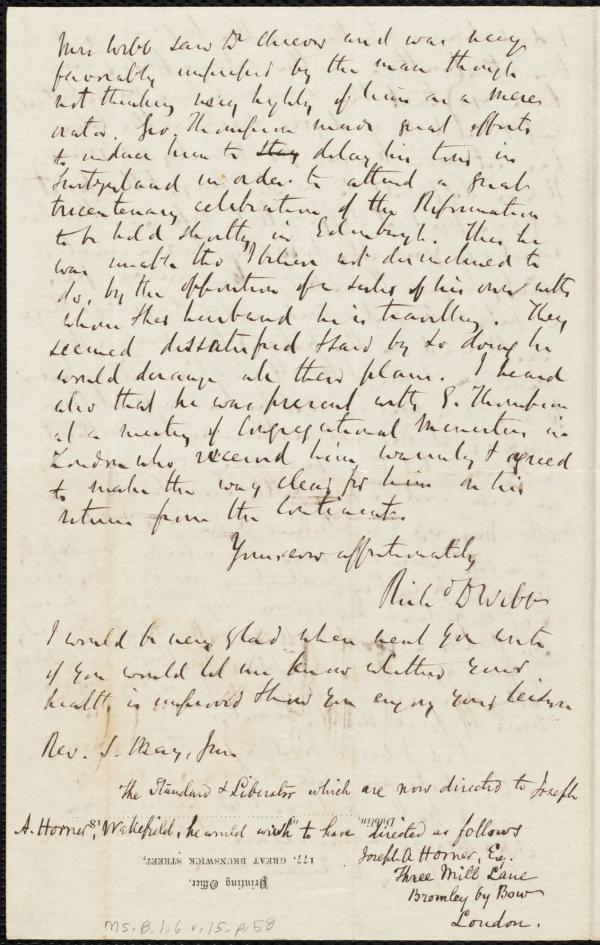 Mrs Webb saw Dr Cheever and was very
favorably impressed by the man though
not thinking very highly of him as a mere
orator. Geo. Thompson made great efforts
to induce him to stay delay his tour in
Switzerland in order to attend a great
tricentenary celebration of the Reformation
to be held shortly in Edinburgh. This he
was unable tho' I believe not disinclined to
do, by the opposition of a sister of his own with
whose husband he is travelling. They
seemed dissatisfied & said by so doing he
would derange all their plans. I heard
also that he was present with G. Thompson
at a meeting of Congregational Ministers in
London who received him warmly & agreed
to make the way clear for him on his
return from the Continent.
Yours ever affectionately
Richd D Webb
I would be very glad when next you write
if you would let me know whether your
health is improved & how you enjoy your leisure
Rev. S. May, Jun
The Standard & Liberator which are now directed to Joseph
A. Horner, Wakefield, he would wish to have directed as follows
Joseph A Horner, Esq.
Three Mill Lane
Bromley by Bow
London.
Printing Office,
177, GREAT BRUNSWICK STREET,
Dublin, 18
Ms. B. 1. 6 v. 15, p. 58